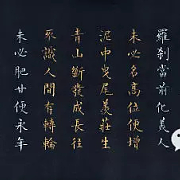 羅剎當前化美人
未必名高位便增
泥中曳尾羨莊生
青山斷發成長往
識人間有轉輪
未必肥甘便永年